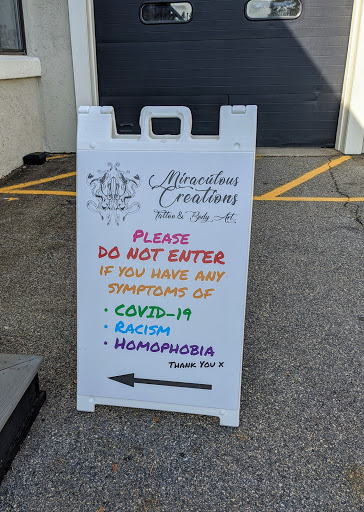 Miraculous
Creations
Tattoo & Body Art
PLEASE
DO NOT ENTER
IF YOU HAVE ANY
SYMPTOMS OF
• COVID-19
• RACISM
• HOMOPHOBIA
THANK YOU X